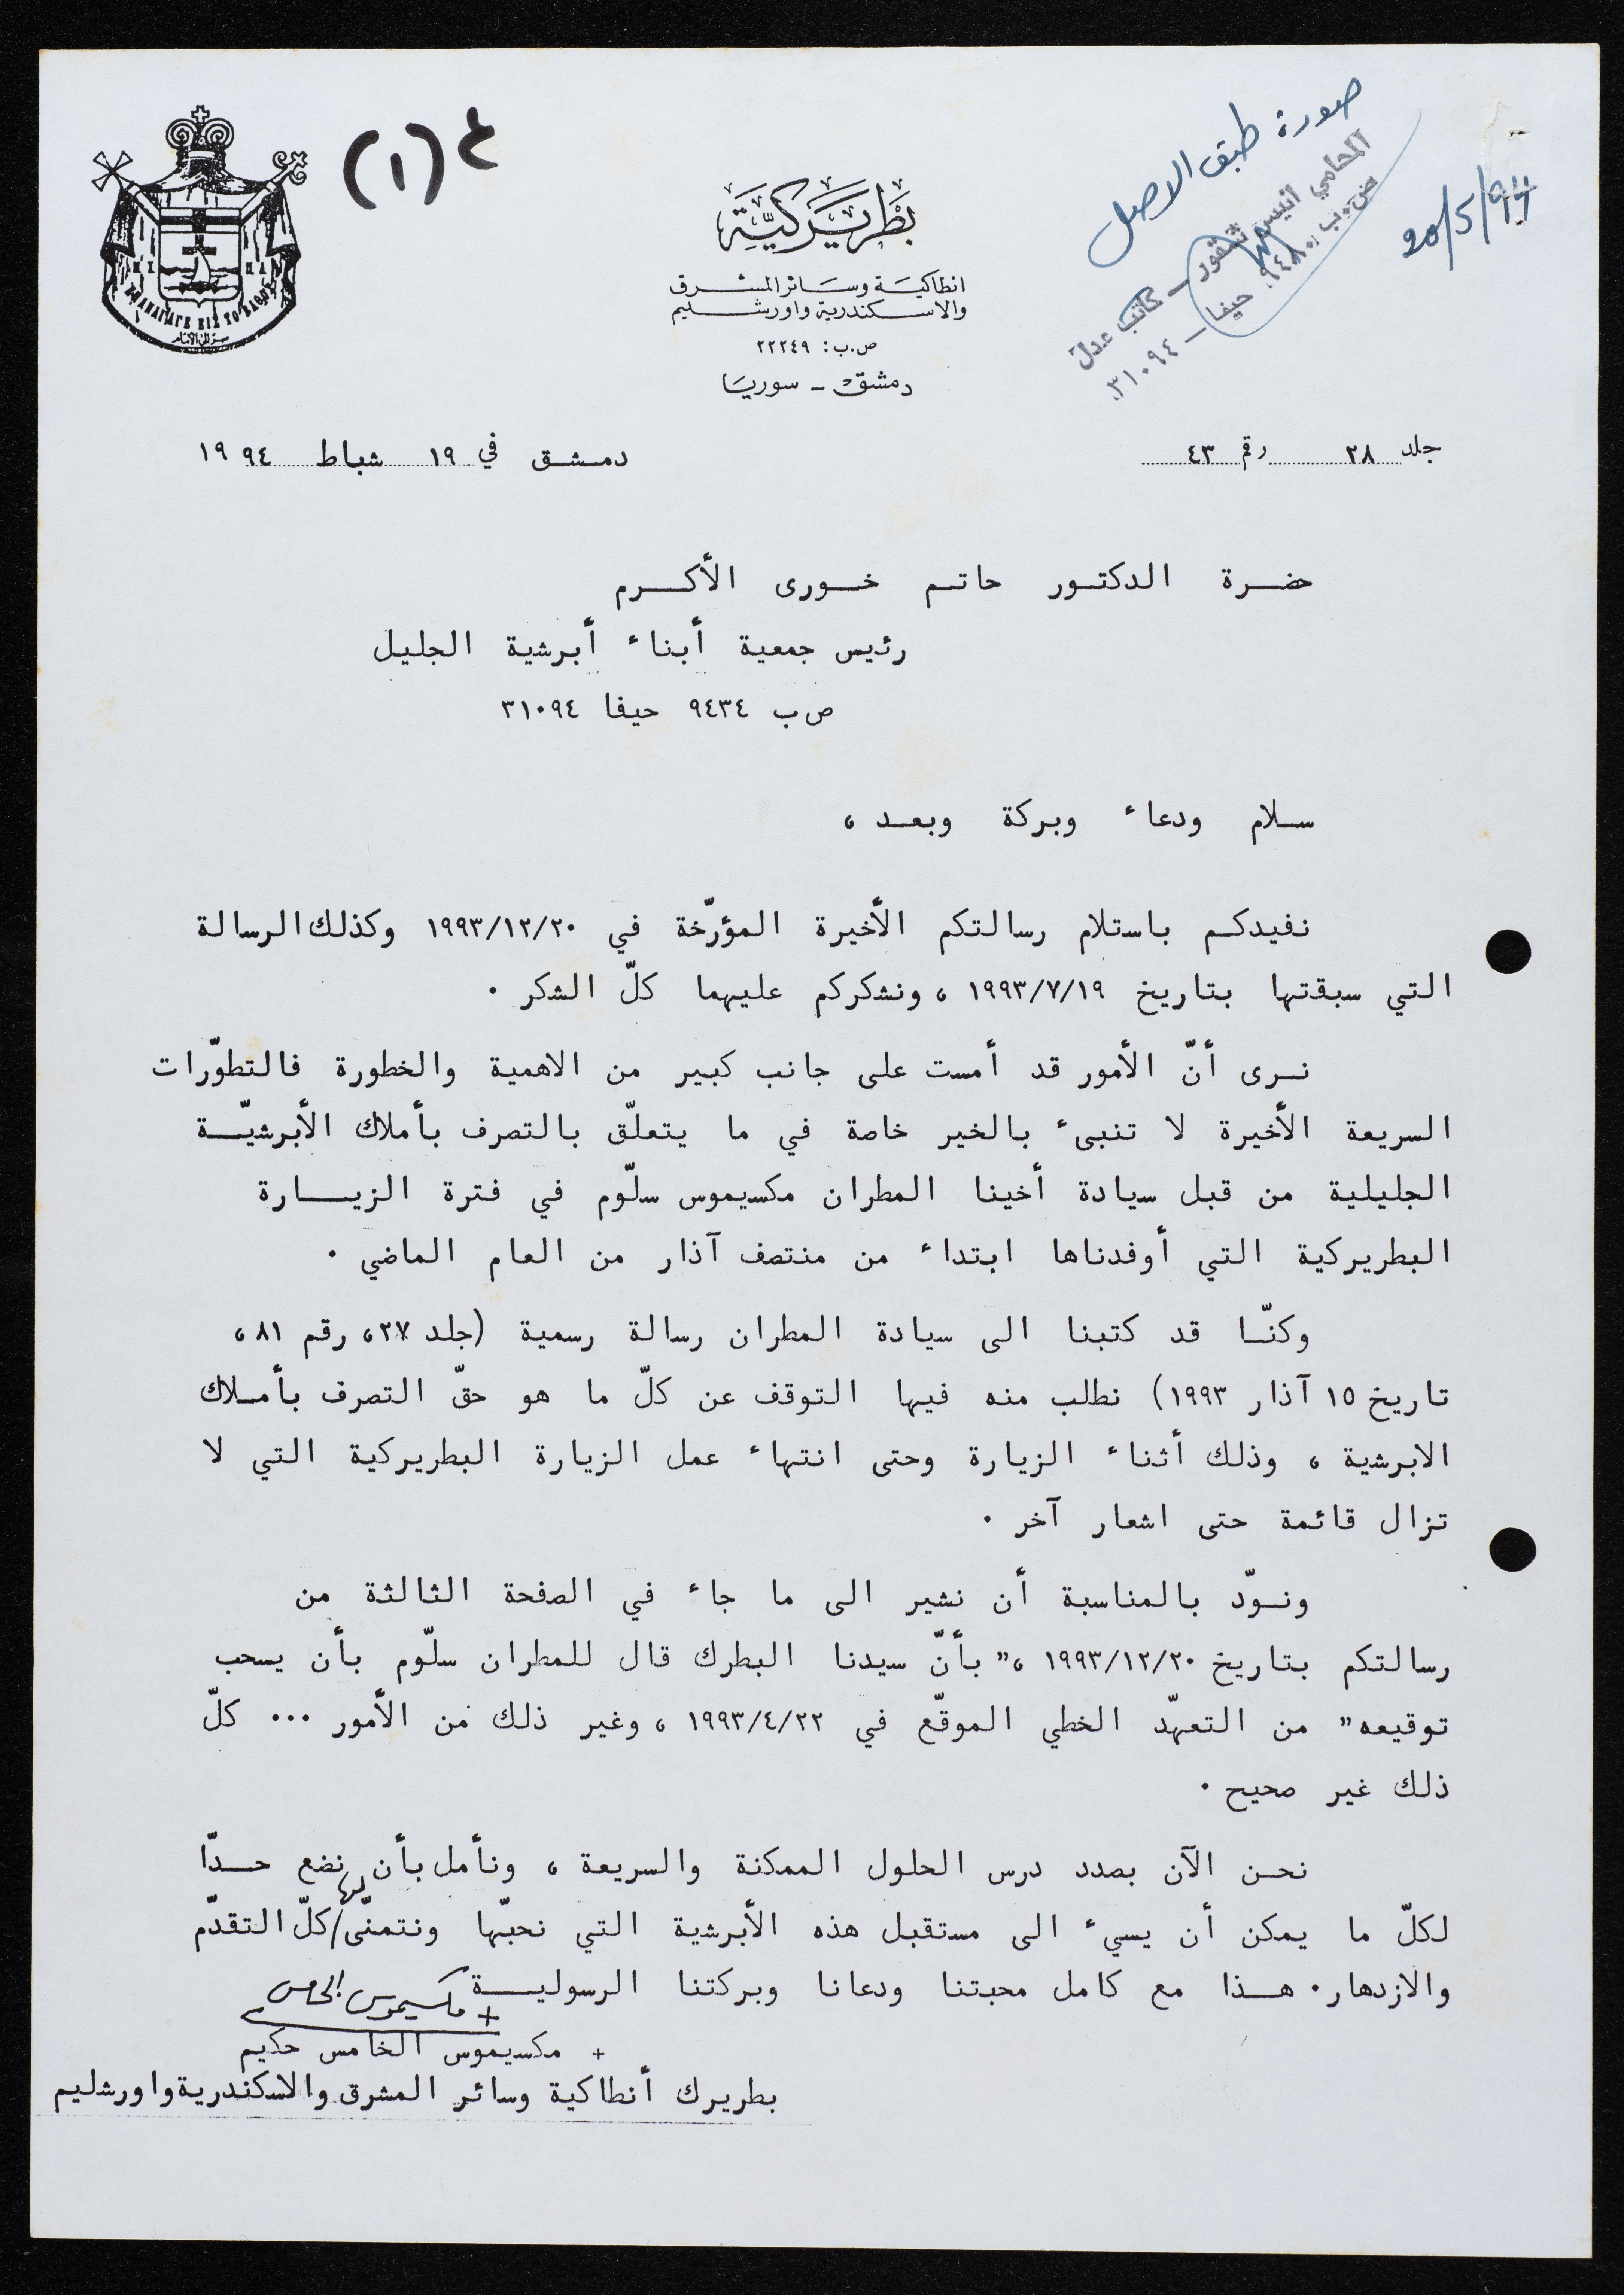 ٤ (١)
صورة طبق الاصل
المحامي انيس شقور - كاتب عدل
ص.ب. ٩٤٨٠ حيفا - ٣١٠٩٤
20/5/94
بطريركية
انطاكية وسائر المشرق
والاسكندرية واورشليم
ص.ب: ٢٢٢٤٩
دمشق - سوريا
جلد ٢٨ رقم ٤٣
دمشق في ١٩ شباط ١٩٩٤
حضرة الدكتور حاتم خورى الأكرم
رئيس جمعية أبناء أبرشية الجليل
ص ب ٩٤٣٤ حيفا ٣١٠٩٤
سلام ودعاء وبركة وبعد ،
نفيدكم باستلام رسالتكم الأخيرة المؤرّخة في ١٩٩٣/١٢/٢٠ وكذلك الرسالة
التي سبقتها بتاريخ ١٩٩٣/٧/١٩ ، ونشكركم عليهما كلّ الشكر .
نرى أنّ الأمور قد أمست على جانب كبير من الاهمية والخطورة فالتطوّرات
السريعة الأخيرة لا تنبىء بالخير خاصة في ما يتعلّق بالتصرف بأملاك الأبرشيّة
الجليلية من قبل سيادة أخينا المطران مكسيموس سلّوم في فترة الزيارة
البطريركية التي أوفدناها ابتداء من منتصف آذار من العام الماضي .
وكنّا قد كتبنا الى سيادة المطران رسالة رسمية (جلد ٢٧، رقم ٨١ ،
تاريخ ١٥ آذار ١٩٩٣) نطلب منه فيها التوقف عن كلّ ما هو حقّ التصرف بأملاك
الابرشية ، وذلك أثناء الزيارة وحتى انتهاء عمل الزيارة البطريركية التي لا
تزال قائمة حتى اشعار آخر .
ونودّ بالمناسبة أن نشير الى ما جاء في الصفحة الثالثة من
رسالتكم بتاريخ ١٩٩٣/١٢/٢٠ ،" بأنّ سيدنا البطرك قال للمطران سلّوم بأن يسحب
توقيعه" من التعهّد الخطي الموقّع في ١٩٩٣/٤/٢٢ ، وغير ذلك من الأمور ... كلّ
ذلك غير صحيح .
نحن الآن بصدد درس الحلول الممكنة والسريعة ، ونأمل بأن نضع حدّا
لكلّ ما يمكن أن يسيء الى مستقبل هذه الأبرشية التي نحبّها ونتمنّى لها كلّ التقدّم
والازدهار. هذا مع كامل محبتنا ودعانا وبركتنا الرسولية
+ مكسيموس الخامس
+ مكسيموس الخامس حكيم
بطريرك أنطاكية وسائر المشرق والاسكندرية واورشليم